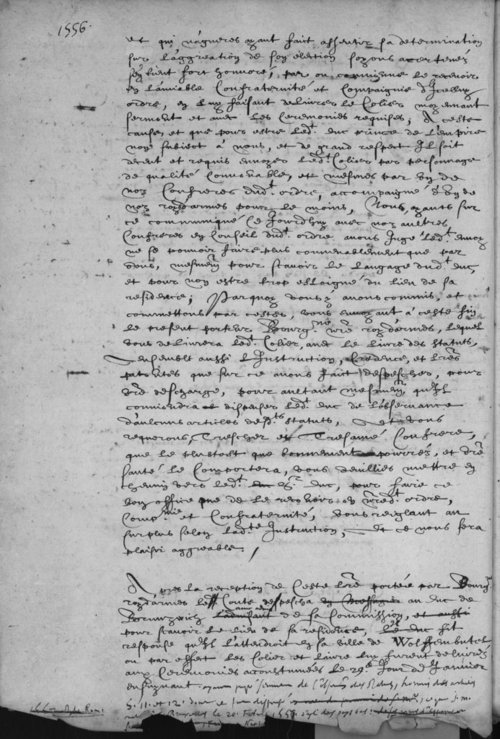 1556.
et qui nagueres ayant faict assentir sa determination
sur l'aggreation de son election soyons acertenez
s'en tient fort honnoré, par ou convienne le recevoir
en l'amiable Confraternité et Compaignie d'icelluy
ordre, en luy faisant delivrer le Colier moyennant
serment et avec les Ceremonies requises, A ceste
cause, et que pour estre led.t duc prince de l'empire
non subiect à nous, et de grand respect il soit
decent et requis envoyer led.t Colier par personnage
de qualité Convenable, et mesmes par ung de
noz Confreres dud.t ordre, accompaigné d'ung de
noz roydarmes pour le moins, Nous, ayants sur
ce communiqué ce Jourdhuy avec noz aultres
Confreres en Conseil dud.t ordre avons Jugé led.t envoy
ne se pouvoir faire plus convenablement que par
vous, mesmem.t pour scavoir le langage dud.t duc,
et pour non estre trop eslongné du lieu de sa
residence; Parquoy vous y avons commis, et
commettons par cestes, vous envoyant à ceste fin
le present porteur Bourg.ne n.re roydarmes, lequel
vous delivrera led.t Colier, avec le livre des statuts,
Ensemble aussi l'Instruction, Credence, et l.res
patentes que sur ce avons faict despescher, pour
v.re descharge, pour aultant mesmem.t qu'il
conviendra dispenser led.t duc de l'observance
d'aulcuns articles desd.ts statuts, Et vous
requerons, Treschier et Tresamé Confrere,
que le plustost que bonnement pourrez, et v.re
santé le Comportera, vous veuilliez mettre en
chemin vers led.t duc, pour faire ce
bon office que de le recevoir en n.red.t ordre,
Comp.nie et Confraternité, vous reiglant au
surplus selon lad.te Instruction, Et ce nous sera
plaisir aggreable,
Apres la reception de Ceste l.re portée par Bourg.ne
roydarmes le Conte despescha au duc de
Brunswick de sa Commission, et
pour scavoir le lieu de sa residence, duc fit
response qu'il l'attendroit en sa ville de Wolffembutel
ou par effect les Colier et livre luy furent delivrez
aux Ceremonies accoustumées le 29.e Jour de Janvier
ensuyvant